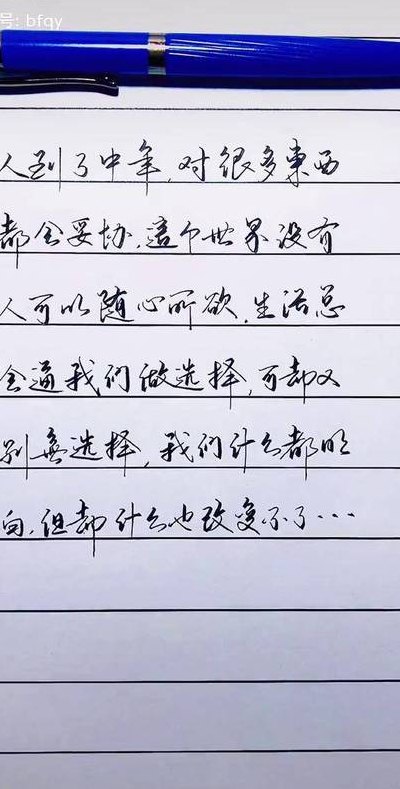 号: bfqy
人到了中年,对很多東西
都会妥协,這个世界没有
人可以随心所欲,生活总
会逼我们做选择,可却又
别無选择,我们什么都明
白,但却什么也改变不了…